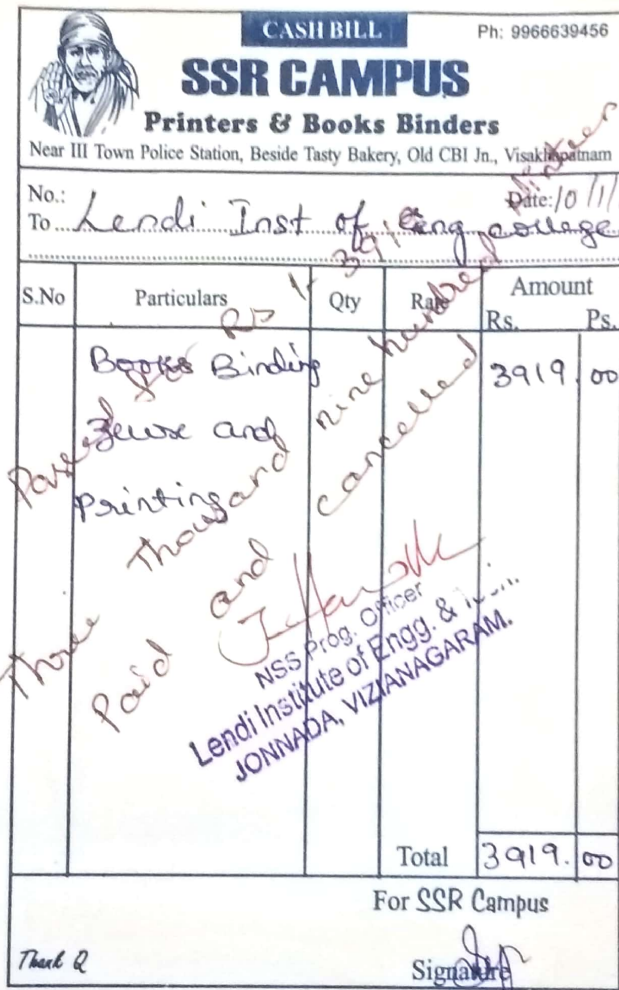 CASH BILL
Ph: 9966639456
SSR CAMPUS
Printers & Books Binders
Near III Town Police Station, Beside Tasty Bakery, Old CBI Jn., Visakhapatnam
No.:
Date: 10/1/
To Lendi Inst of Eng college
S.No Particulars Qty Rate Amount
Rs. Ps.
Books Binding 3919.00
and
Printing
Rs 1- 3919
Three Thousand nine hundred
Paid and cancelled
NSS Prog. Officer
Lendi Institute of Engg. &
JONNADA, VIZIANAGARAM.
Total 3919.00
For SSR Campus
Thank Q
Signature